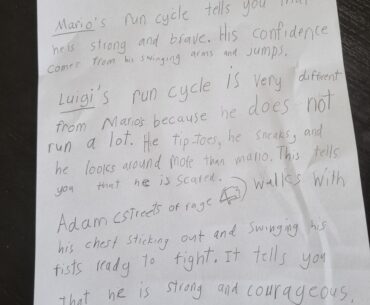 Mario's run cycle tells you that
he is strong and brave. His confidence
comes from his swinging arms and jumps.
Luigi's run cycle is very different
from Marios because he does not
run a lot. He tip-toes, he sneaks, and
he looks around more than mario. This tells
you that he is scared.
Adam (streets of rage 4) walks with
his chest sticking out and swinging his
fists ready to fight. It tells you
that he is strong and courageous.